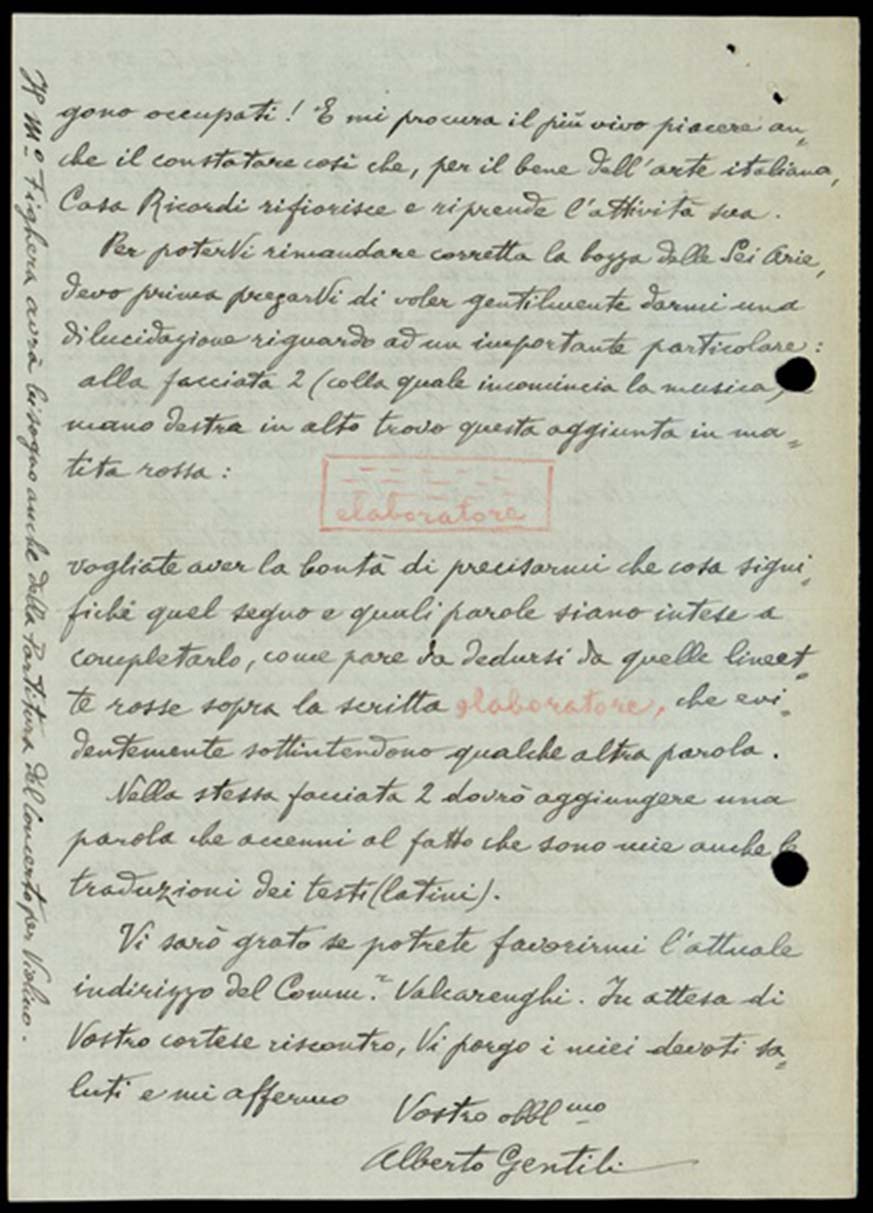 gono occupati! E mi procura il più vivo piacere an=
che il constatare così che, per il bene dell'arte italiana,
Casa Ricordi rifiorisce e riprende l'attività sua.
Per poterVi rimandare corretta la bozza delle Sei Arie,
devo prima pregarVi di voler gentilmente darmi una
dilucidazione riguardo ad un importante particolare:
alla facciata 2 (colla quale incomincia la musica)
mano destra in alto trovo questa aggiunta in ma=
tita rossa:
elaboratore
vogliate aver la bontà di precisarmi che cosa signi=
fichi quel segno e quali parole siano intese a
completarlo, come pare da dedursi da quelle lineet=
te rosse sopra la scritta elaboratore, che evi=
dentemente sottintendono qualche altra parola.
Nella stessa facciata 2 dovrò aggiungere una
parola che accenni al fatto che sono mie anche le
traduzioni dei testi (latini).
Vi sarò grato se potrete favorirmi l'attuale
indirizzo del Comm.r Valcarenghi. In attesa di
Vostro cortese riscontro, Vi porgo i miei devoti sa=
luti e mi affermo
Vostro obbl.mo
Alberto Gentili
Il Mo Fighera avrà bisogno anche della Partitura del Concerto per Violino.